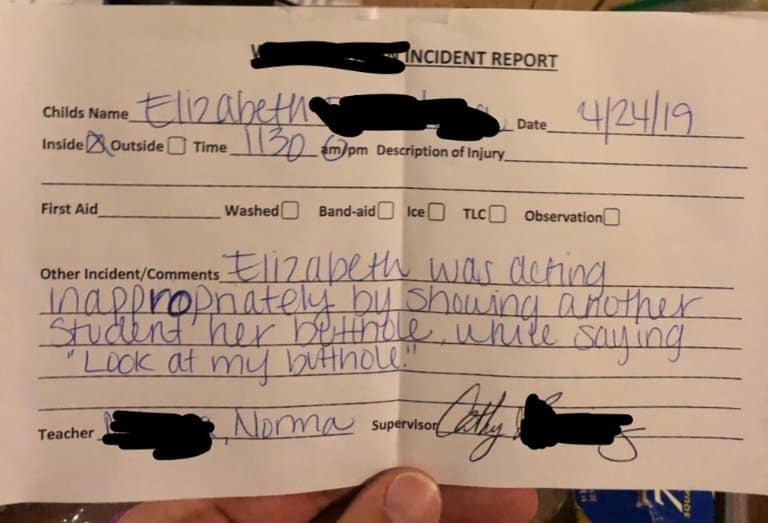 INCIDENT REPORT
Childs Name Elizabeth Date 4/24/19
Inside ☒ Outside ☐ Time 1130 am/pm Description of Injury
First Aid Washed ☐ Band-aid ☐ Ice ☐ TLC ☐ Observation ☐
Other Incident/Comments Elizabeth was acting
inappropriately by showing another
student her butthole, while saying
"Look at my butthole."
Teacher , Norma Supervisor Cathy